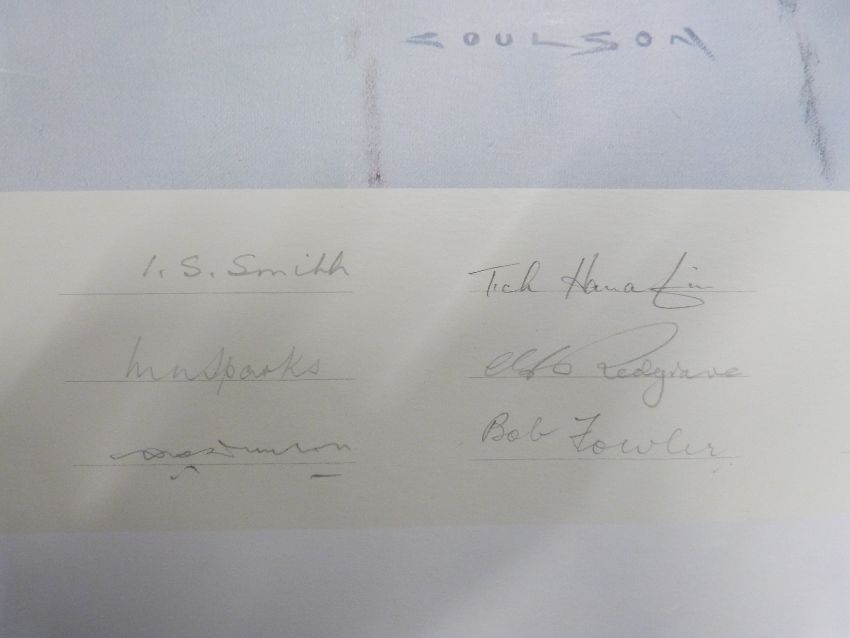 COULSON
I. S. Smith
Tich Hanafin
Sparks
Redgrave
Bob Fowler